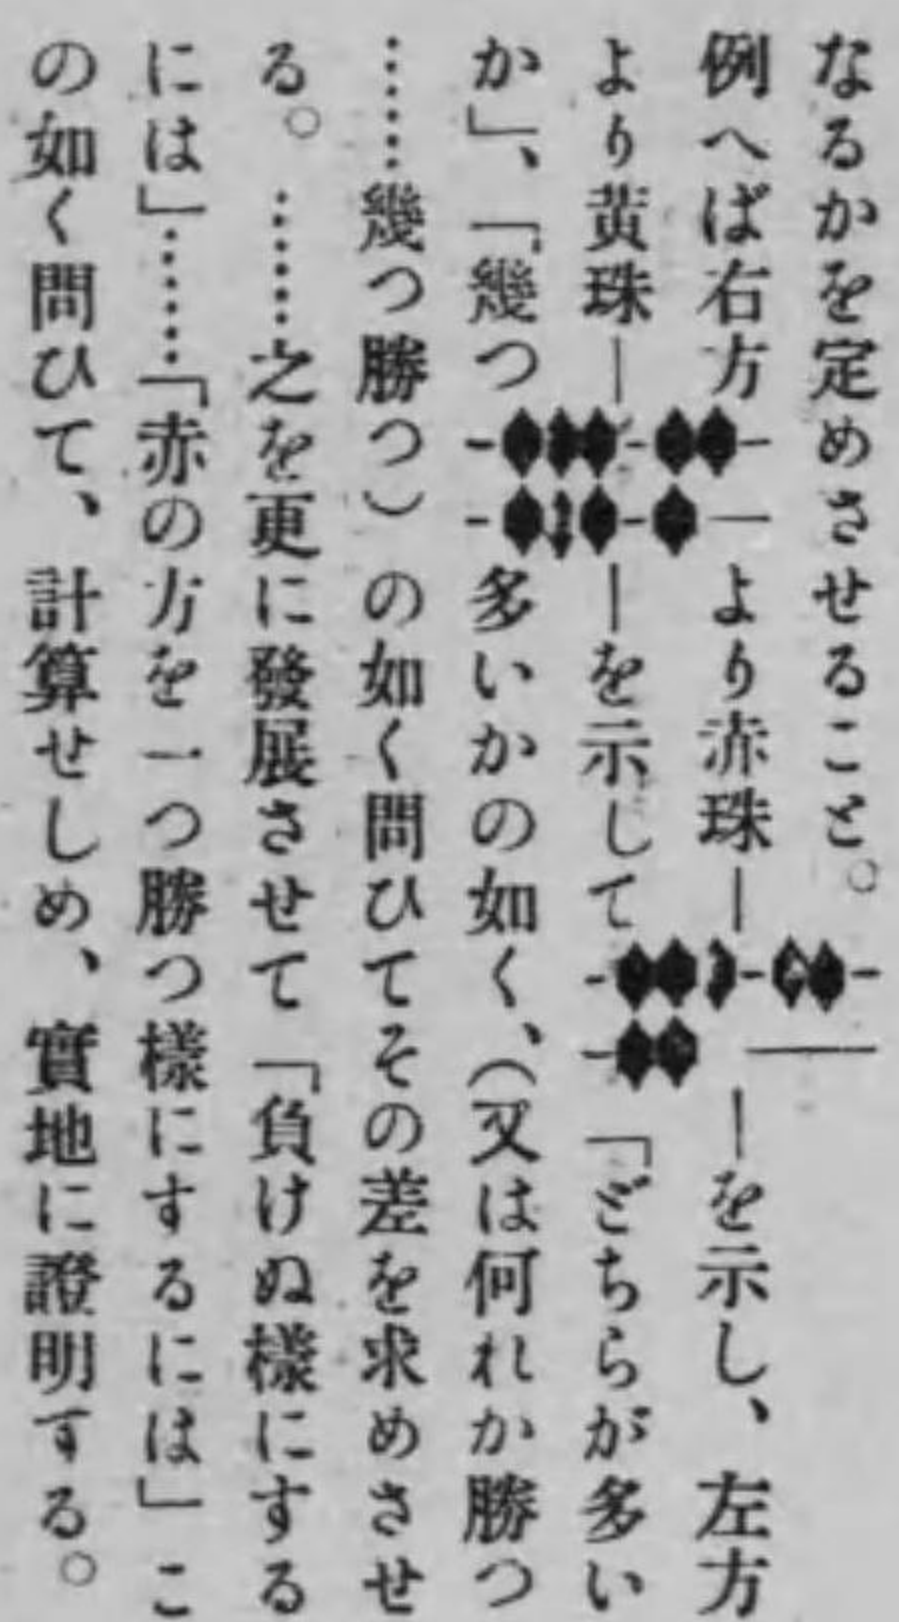 なるかを定めさせること。
例へば右方より赤珠―――を示し、左方
より黄珠――を示して「どちらが多い
か」、「幾つ多いかの如く、(又は何れか勝つ
……幾つ勝つ)の如く問ひてその差を求めさせ
る。……之を更に發展させて「負けぬ樣にする
には」……「赤の方を一つ勝つ樣にするには」こ
の如く問ひて、計算せしめ、實地に證明する。